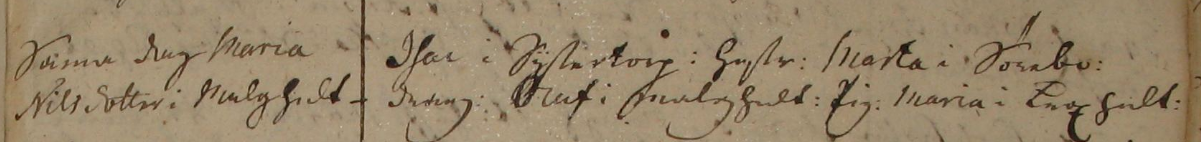 Samma dag Maria
Nils dotter i Malghult -
Isac i Systertorp: hustr: Marta i Sonebo:
dreng: Oluf i malghult: Pig: Maria i hult: